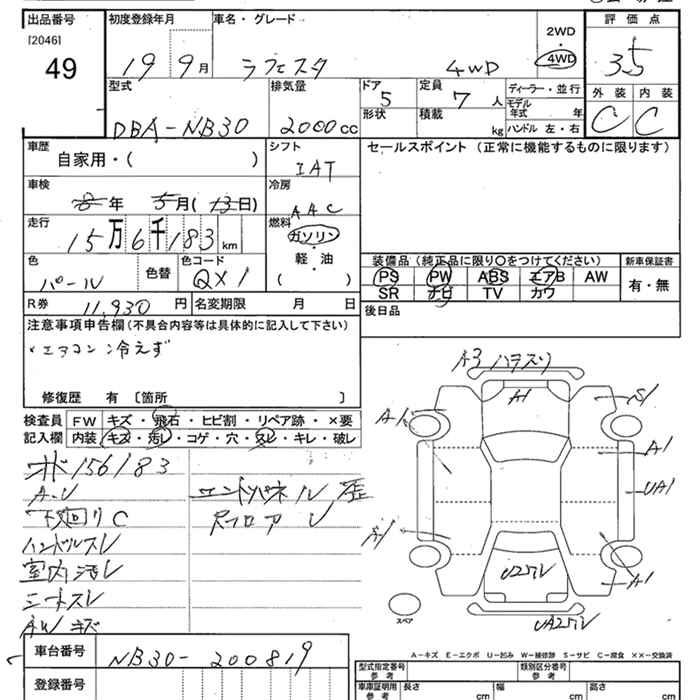 出品番号 初度登録年月 車名・グレード 評価点
[2046]
49
19 9月 ラフェスタ 4WD 2WD・4WD 3.5
外装 内装
C C
型式 排気量 ドア 定員 ディーラー・並行
DBA-NB30 2000cc 5 7人 モデル年式 年
形状 積載 kg ハンドル 左・右
車歴 シフト セールスポイント(正常に機能するものに限ります)
自家用・( ) IAT
車検 冷房
8年 5月(13日) AAC
走行 燃料
15万6千183km ガソリン・軽・油
( )
色 色替 色コード 装備品(純正品に限り○をつけてください) 新車保証書
パール QX1 PS PW ABS エアB AW 有・無
SR ナビ TV カワ
R券 11,930円 名変期限 月 日 後日品
注意事項申告欄(不具合内容等は具体的に記入して下さい)
・エアコン冷えず
修復歴 有〔箇所 〕
検査員 FW キズ・飛石・ヒビ割・リペア跡・×要
記入欄 内装 キズ・汚レ・コゲ・穴・スレ・キレ・破レ
156183
A-U エンドパネル歪
下廻りC Rフロアレ
ハンドルスレ
室内汚レ
シートスレ
AWキズ
A3 ハヲスリ
A1 A1 S1
A1
UA1
S1
U27レ A1
スペア
UA27レ
A-キズ E-エクボ U-凹み W-補修跡 S-サビ C-腐食 ××-交換済
車台番号 NB30-200819
登録番号
型式指定番号 参考 類別区分番号 参考
車庫証明用 参考 長さ cm 幅 cm 高さ cm